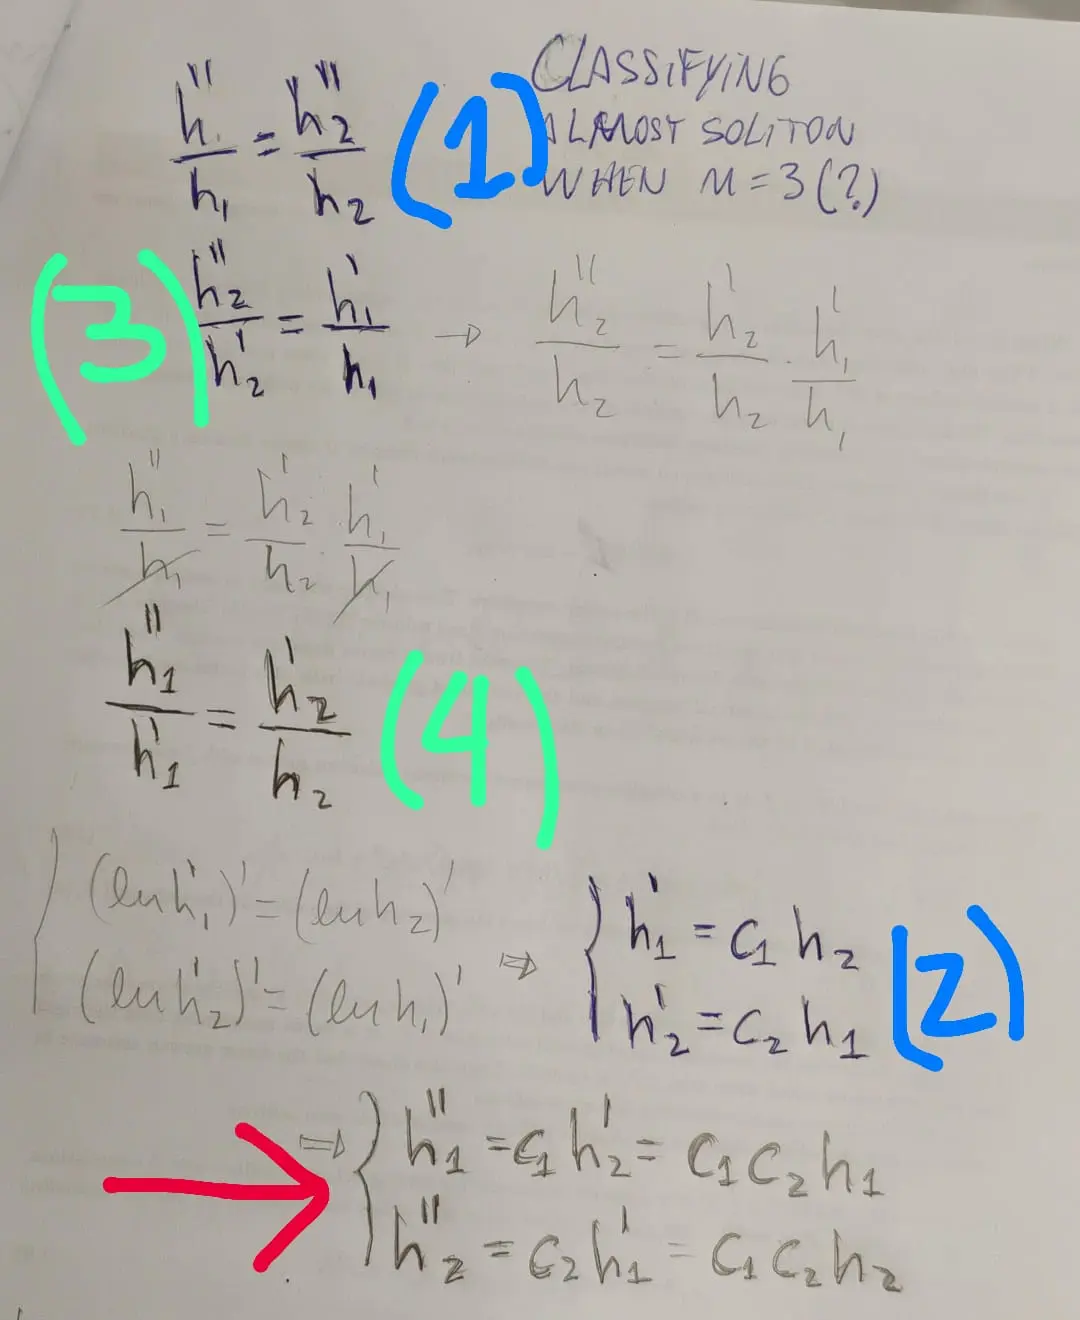 h₁''/h₁ = h₂''/h₂ (1)
CLASSIFYING
ALMOST SOLITON
WHEN n = 3 (?)
(3) h₂''/h₂' = h₁'/h₁ → h₂''/h₂ = h₂'/h₂ · h₁'/h₁
h₁''/h₁ = h₂'/h₂ · h₁'/h₁
h₁''/h₁' = h₂'/h₂ (4)
{ (ln h₁')' = (ln h₂)'
(ln h₂')' = (ln h₁)'
⇒ { h₁' = c₁ h₂
h₂' = c₂ h₁ (2)
⇒ { h₁'' = c₁ h₂' = c₁ c₂ h₁
h₂'' = c₂ h₁' = c₁ c₂ h₂